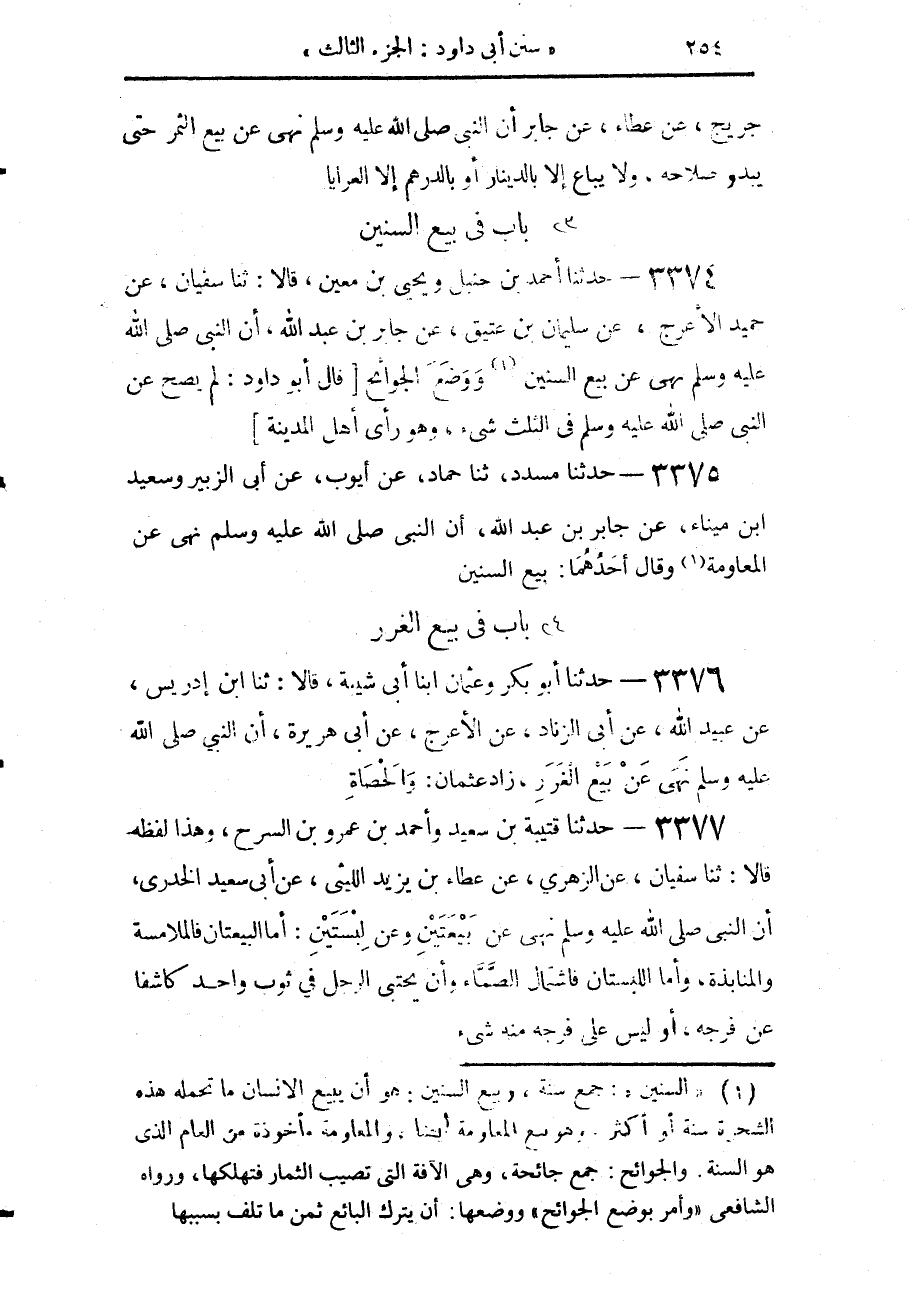 ٢٥٤ « سنن أبى داود : الجزء الثالث »
جريج ، عن عطاء ، عن جابر أن النبى صلى الله عليه وسلم نهى عن بيع الثمر حتى
يبدو صلاحه . ولا يباع إلا بالدينار أو بالدرهم إلا العرايا
٢٣ باب فى بيع السنين
٣٣٧٤ — حدثنا أحمد بن حنبل ويحيى بن معين ، قالا : ثنا سفيان ، عن
حميد الأعرج ، عن سليمان بن عتيق ، عن جابر بن عبد الله ، أن النبى صلى الله
عليه وسلم نهى عن بيع السنين (١) وَوَضَعَ الجوائح [ قال أبو داود : لم يصح عن
النبى صلى الله عليه وسلم فى الثلث شىء ، وهو رأى أهل المدينة ]
٣٣٧٥ — حدثنا مسدد، ثنا حماد، عن أيوب، عن أبى الزبير وسعيد
ابن ميناء، عن جابر بن عبد الله، أن النبى صلى الله عليه وسلم نهى عن
المعاومة(١) وقال أحَدُهُمَا: بيع السنين
٢٤ باب فى بيع الغرر
٣٣٧٦ — حدثنا أبو بكر وعثمان ابنا أبى شيبة ، قالا : ثنا ابن إدريس ،
عن عبيد الله ، عن أبى الزناد ، عن الأعرج ، عن أبى هريرة ، أن النبي صلى الله
عليه وسلم نَهَى عَنْ بَيْعِ الْغَرَرِ ، زاد عثمان: وَالْحَصَاةِ
٣٣٧٧ — حدثنا قتيبة بن سعيد وأحمد بن عمرو بن السرح ، وهذا لفظه
قالا : ثنا سفيان ، عن الزهري ، عن عطاء بن يزيد الليثى ، عن أبى سعيد الخدرى،
أن النبى صلى الله عليه وسلم نهى عن بَيْعَتَيْنِ وعن لِبْسَتَيْنِ : أما البيعتان فالملامسة
والمنابذة، وأما اللبستان فاشتمال الصَّمَّاء وأن يحتبى الرجل في ثوب واحد كاشفا
عن فرجه ، أو ليس على فرجه منه شىء
(١) « السنين » : جمع سنة ، وبيع السنين : هو أن يبيع الانسان ما تحمله هذه
الشجرة سنة أو أكثر . وهو بيع المعاومة أيضا ، والمعاومة مأخوذة من العام الذى
هو السنة. والجوائح : جمع جائحة، وهى الآفة التى تصيب الثمار فتهلكها، ورواه
الشافعى «وأمر بوضع الجوائح» ووضعها: أن يترك البائع ثمن ما تلف بسببها